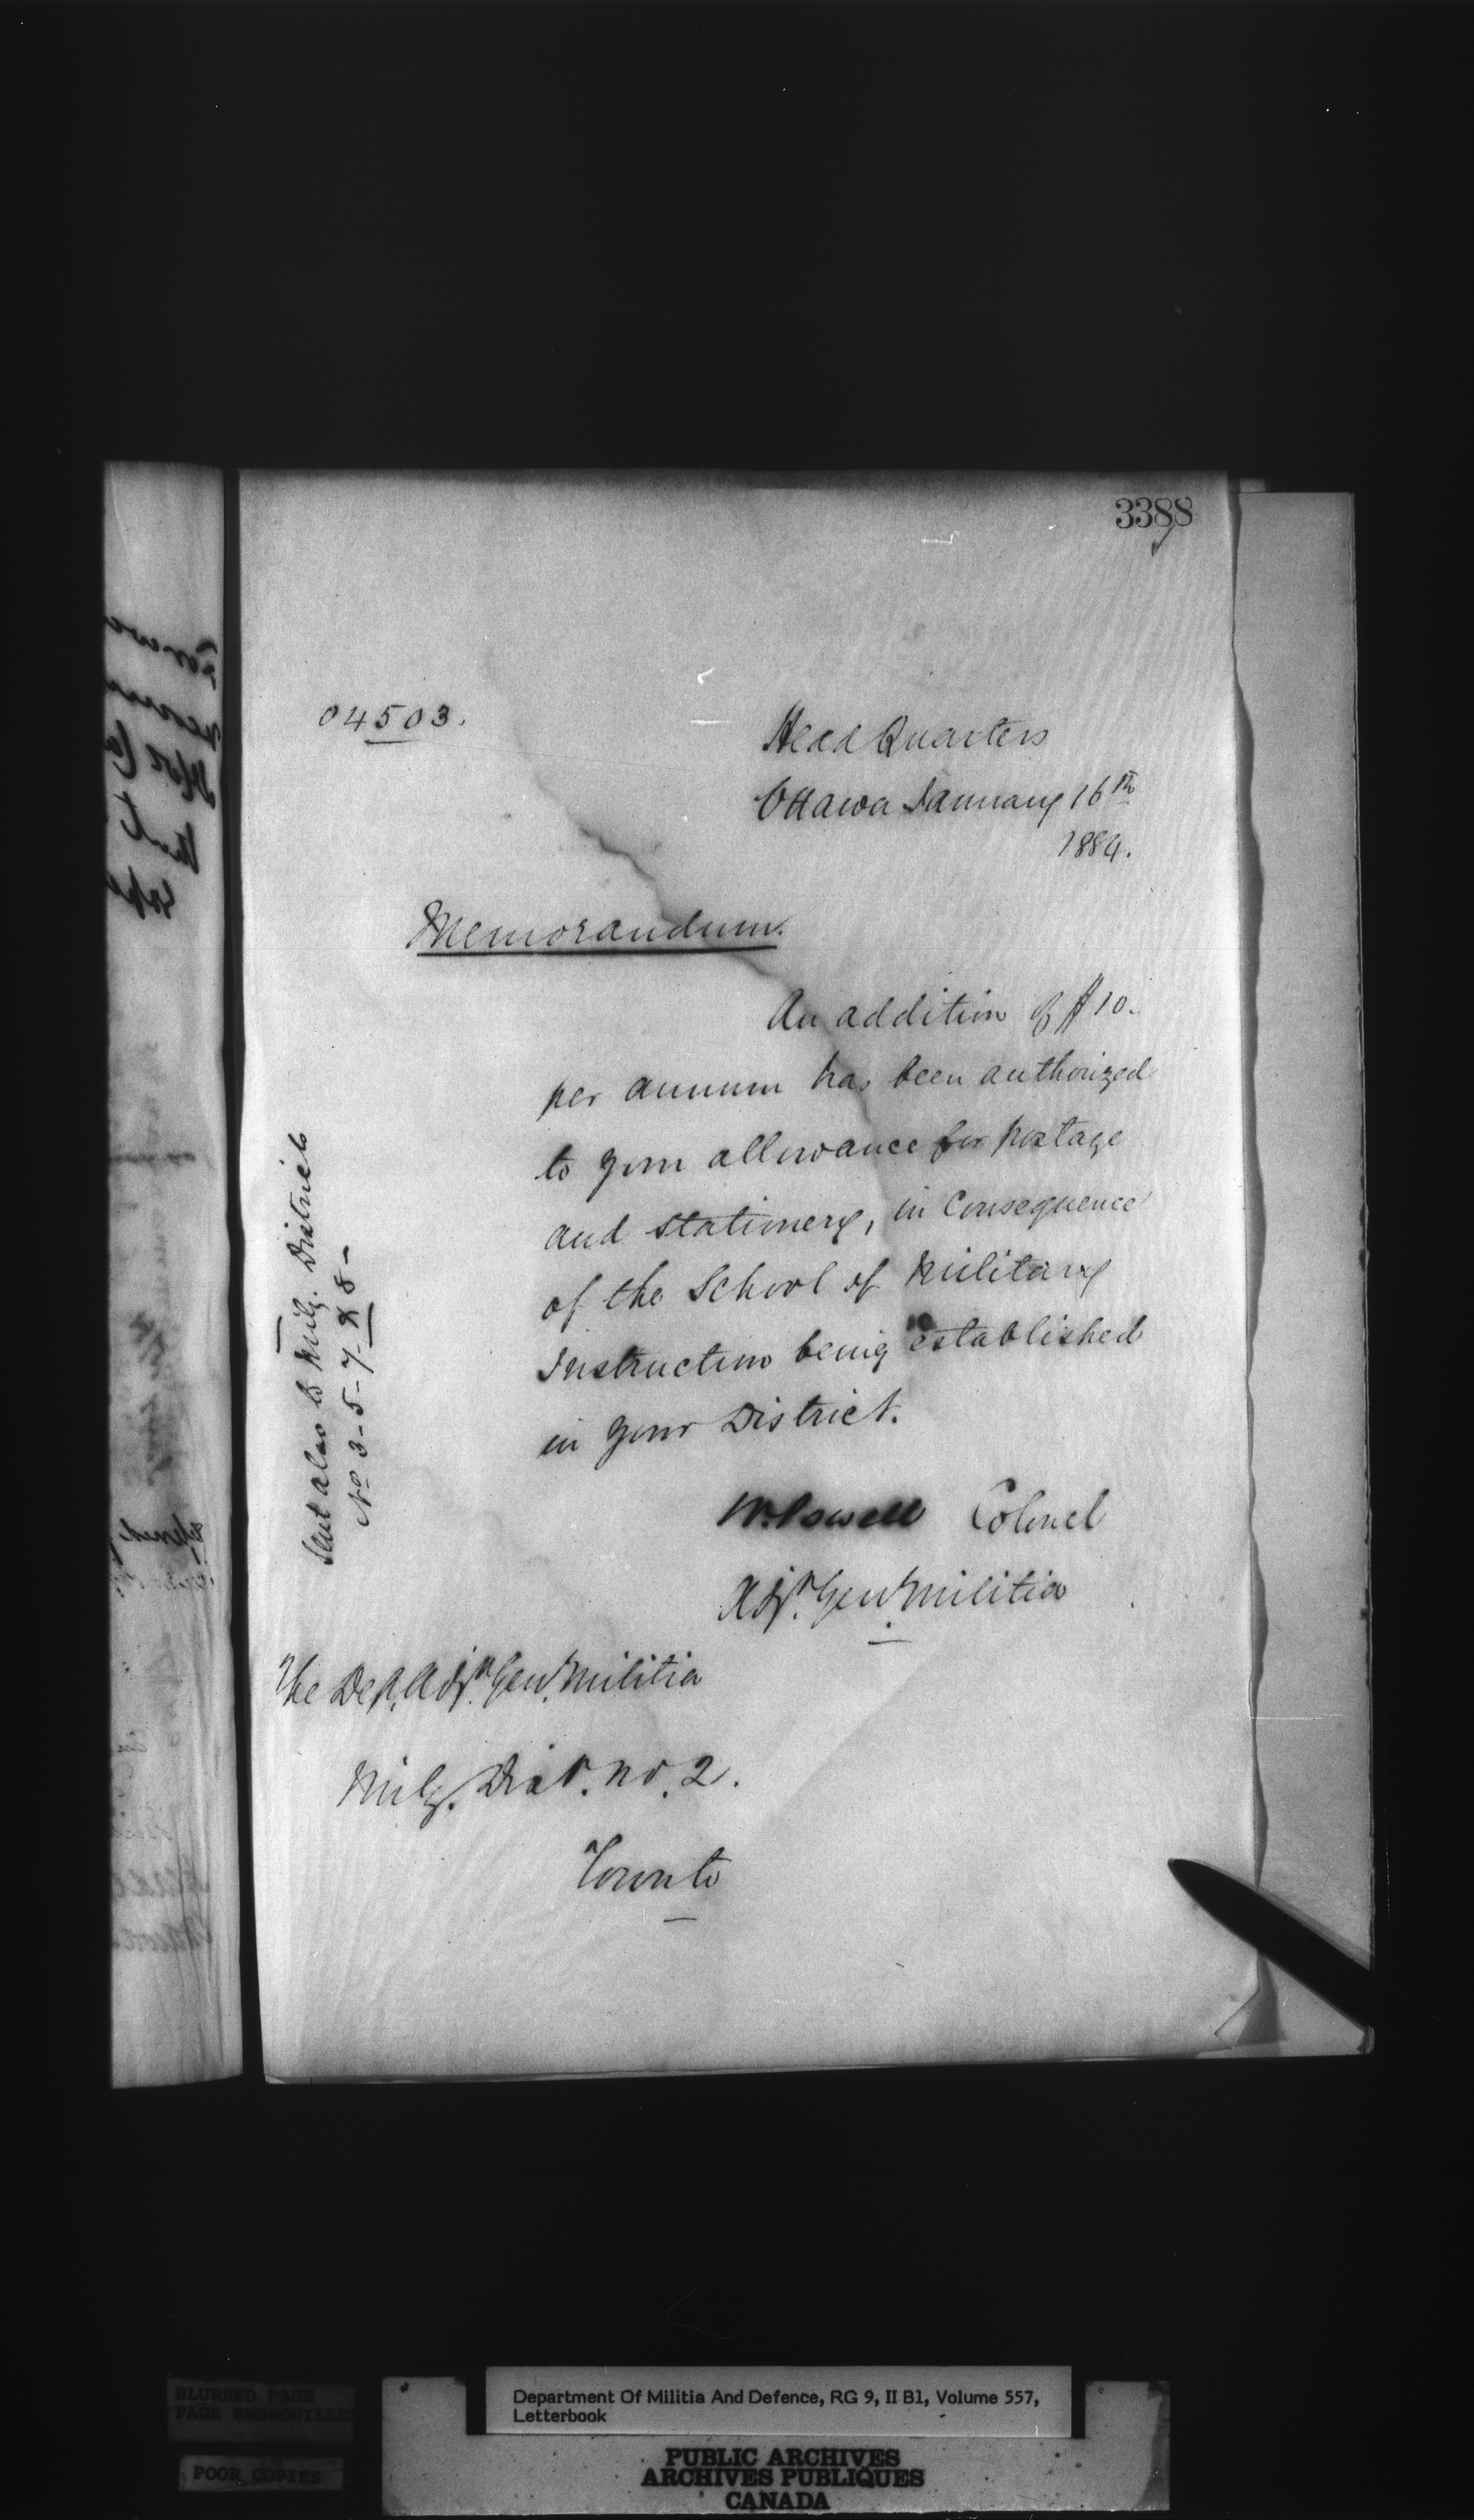 3388
04503.
Head Quarters
Ottawa January 16th
1884.
Memorandum.
An addition of $10.
per annum has been authorized
to your allowance for postage
and stationery, in consequence
of the School of Military
Instruction being established
in your District.
W. Powell Colonel
Adjt. Genl. Militia
The Dep. Adjt. Genl. Militia
Mily. Dist. No. 2.
Toronto
Sent also to Mily. Districts
No 3-5-7-& 8-
BLURRED PAGE
PAGE EMBROUILLE
POOR COPIES
Department Of Militia And Defence, RG 9, II B1, Volume 557,
Letterbook
PUBLIC ARCHIVES
ARCHIVES PUBLIQUES
CANADA